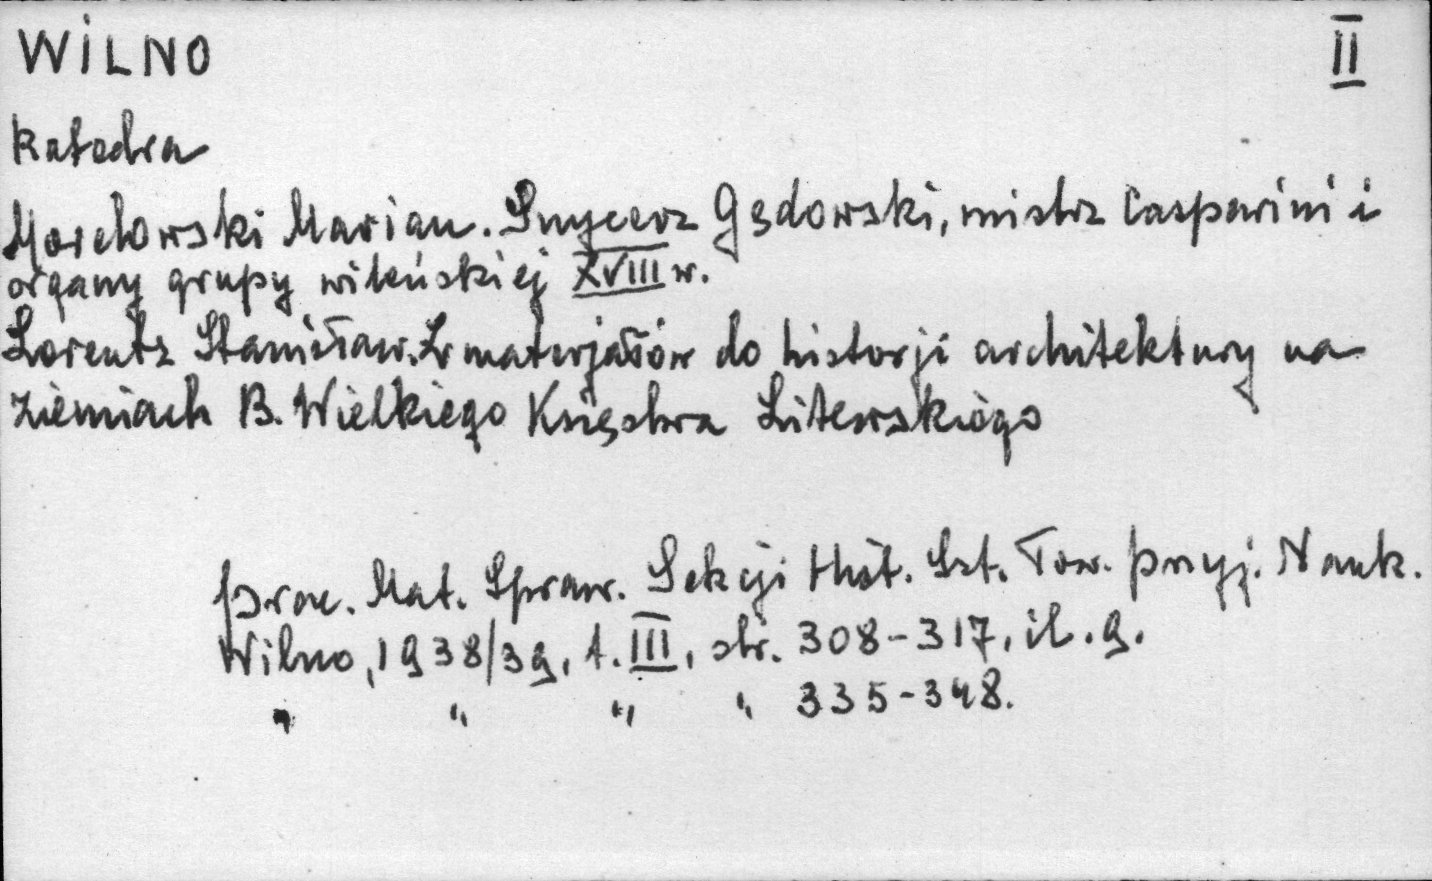 WILNO
II
Katedra
Morelowski Marian. Snycerz Gędowski, mistrz Casparini i
organy grupy wileńskiej XVIII w.
Lorentz Stanisław. Z materjałów do historji architektury na
ziemiach B. Wielkiego Księstwa Litewskiego
Prac. Mat. Spraw. Sekcji Hist. Szt. Tow. Przyj. Nauk.
Wilno, 1938/39, t. III, str. 308-317, il. 9.
" " " " 335-348.